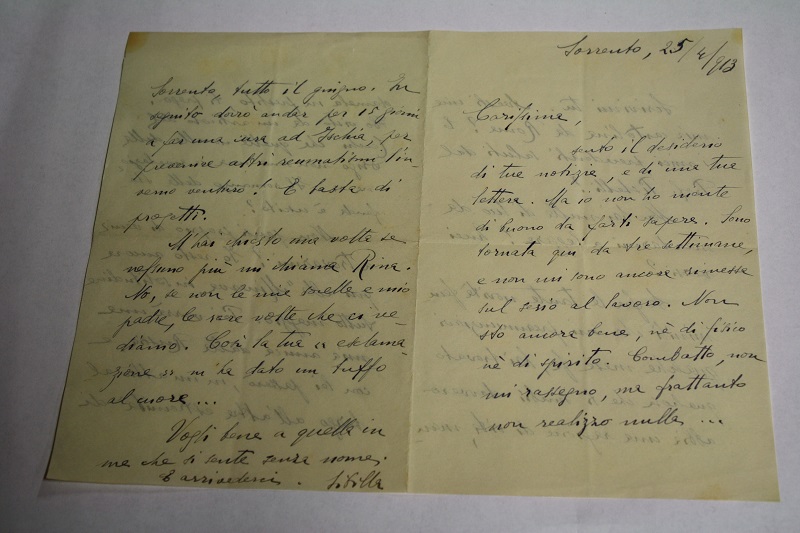 Sorrento, 25/4/913
Carissima,
sento il desiderio
di tue notizie, e di una tua
lettera. Ma io non ho niente
di buono da farti sapere. Sono
tornata qui da tre settimane,
e non mi sono ancora rimessa
sul serio al lavoro. Non
sto ancora bene, nè di fisico
nè di spirito. Combatto, non
mi rassegno, ma frattanto
non realizzo nulla ...
Sorrento, tutto il giugno. In
seguito dovrò andar per 15 giorni
a far una cura ad Ischia, per
prevenire altri reumatismi l'in-
verno venturo! E basta di
progetti.
M'hai chiesto una volta se
nessuno più mi chiama Rina.
No, se non le mie sorelle e mio
padre, le rare volte che ci ve-
diamo. Così la tua « esclama-
zione » m'ha dato un tuffo
al cuore ...
Vogli bene a quella in
me che si sente senza nome.
E arrivederci. Sibilla